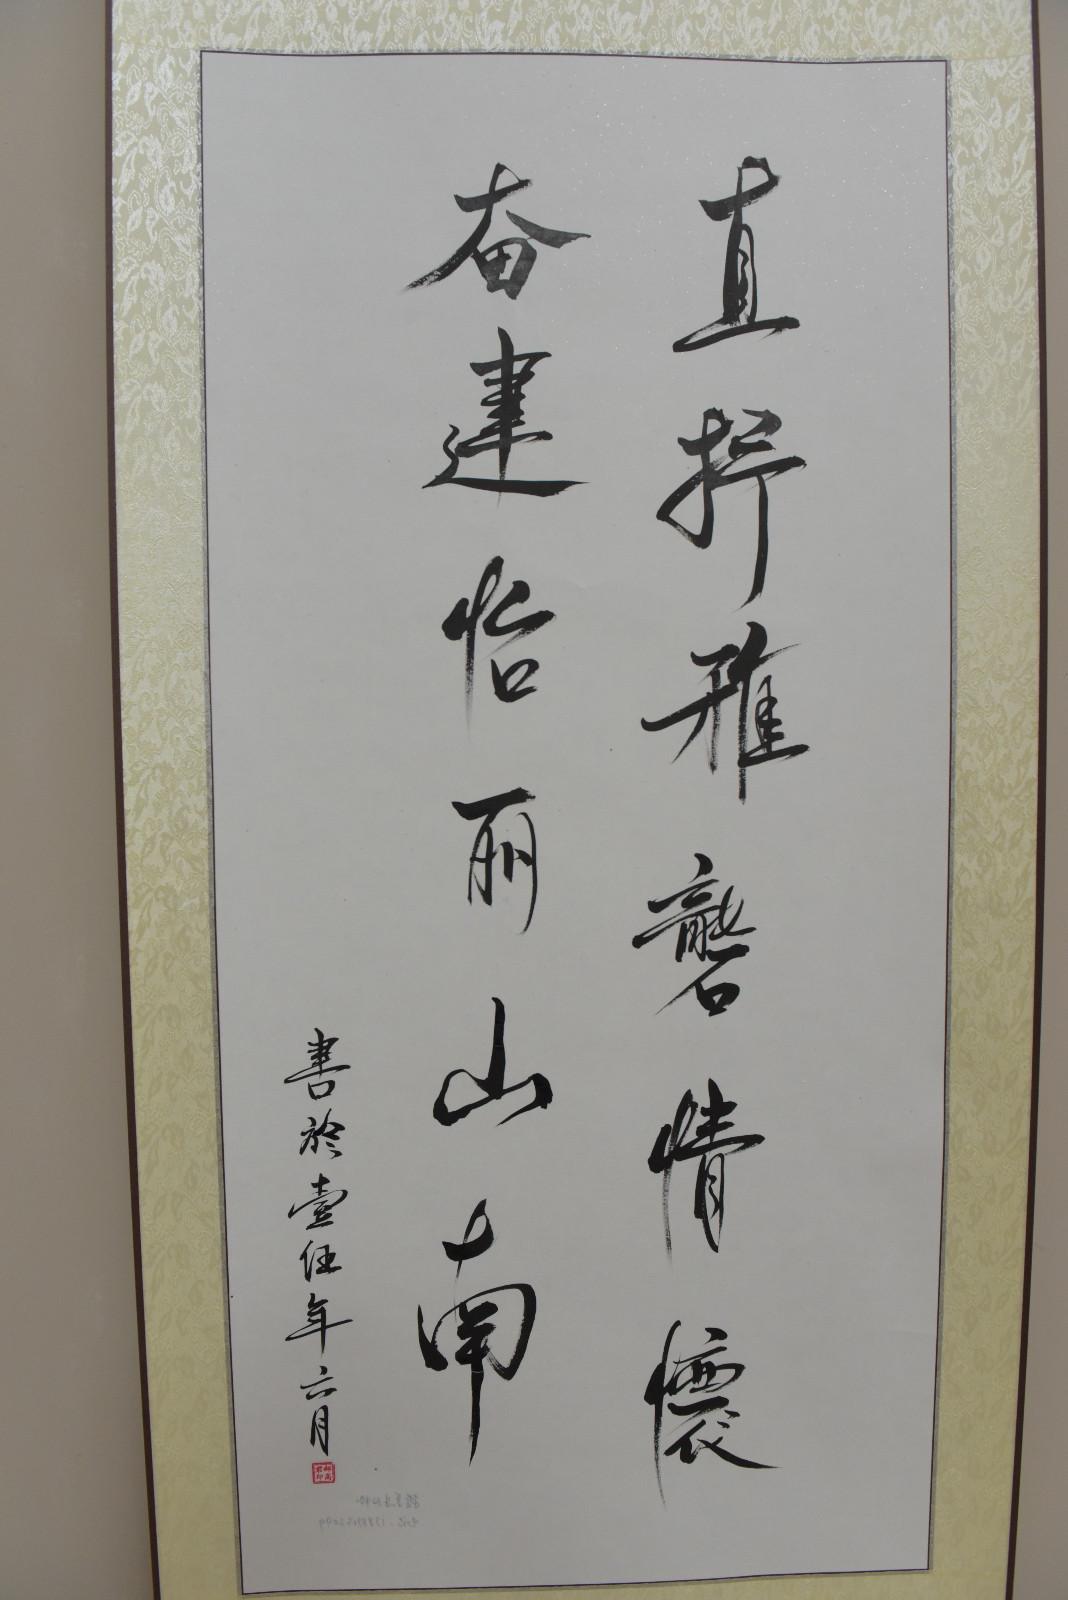 直抒雅磬情懷
奋建怡丽山南
書於壹伍年六月